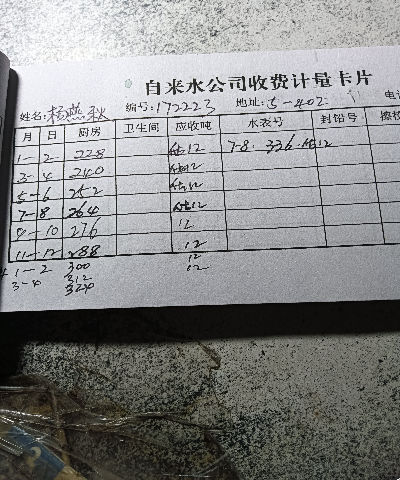 自来水公司收费计量卡片
姓名:杨燕秋 编号:172223 地址:5-402 电
月 日 厨房 卫生间 应收吨 水表号 封铅号 擦
1-2 228 估12 7-8. 336. 估12
3-4 240 估12
5-6 252 估12
7-8 264 估12
9-10 276 12
11-12 288 12
1-2 300 12
3-4 312 12
324